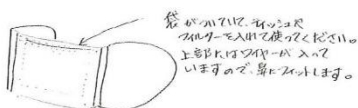 袋がついていて、ティッシュや
フィルターを入れて使ってください。
上部にはワイヤーが入って
いますので鼻にフィットします。